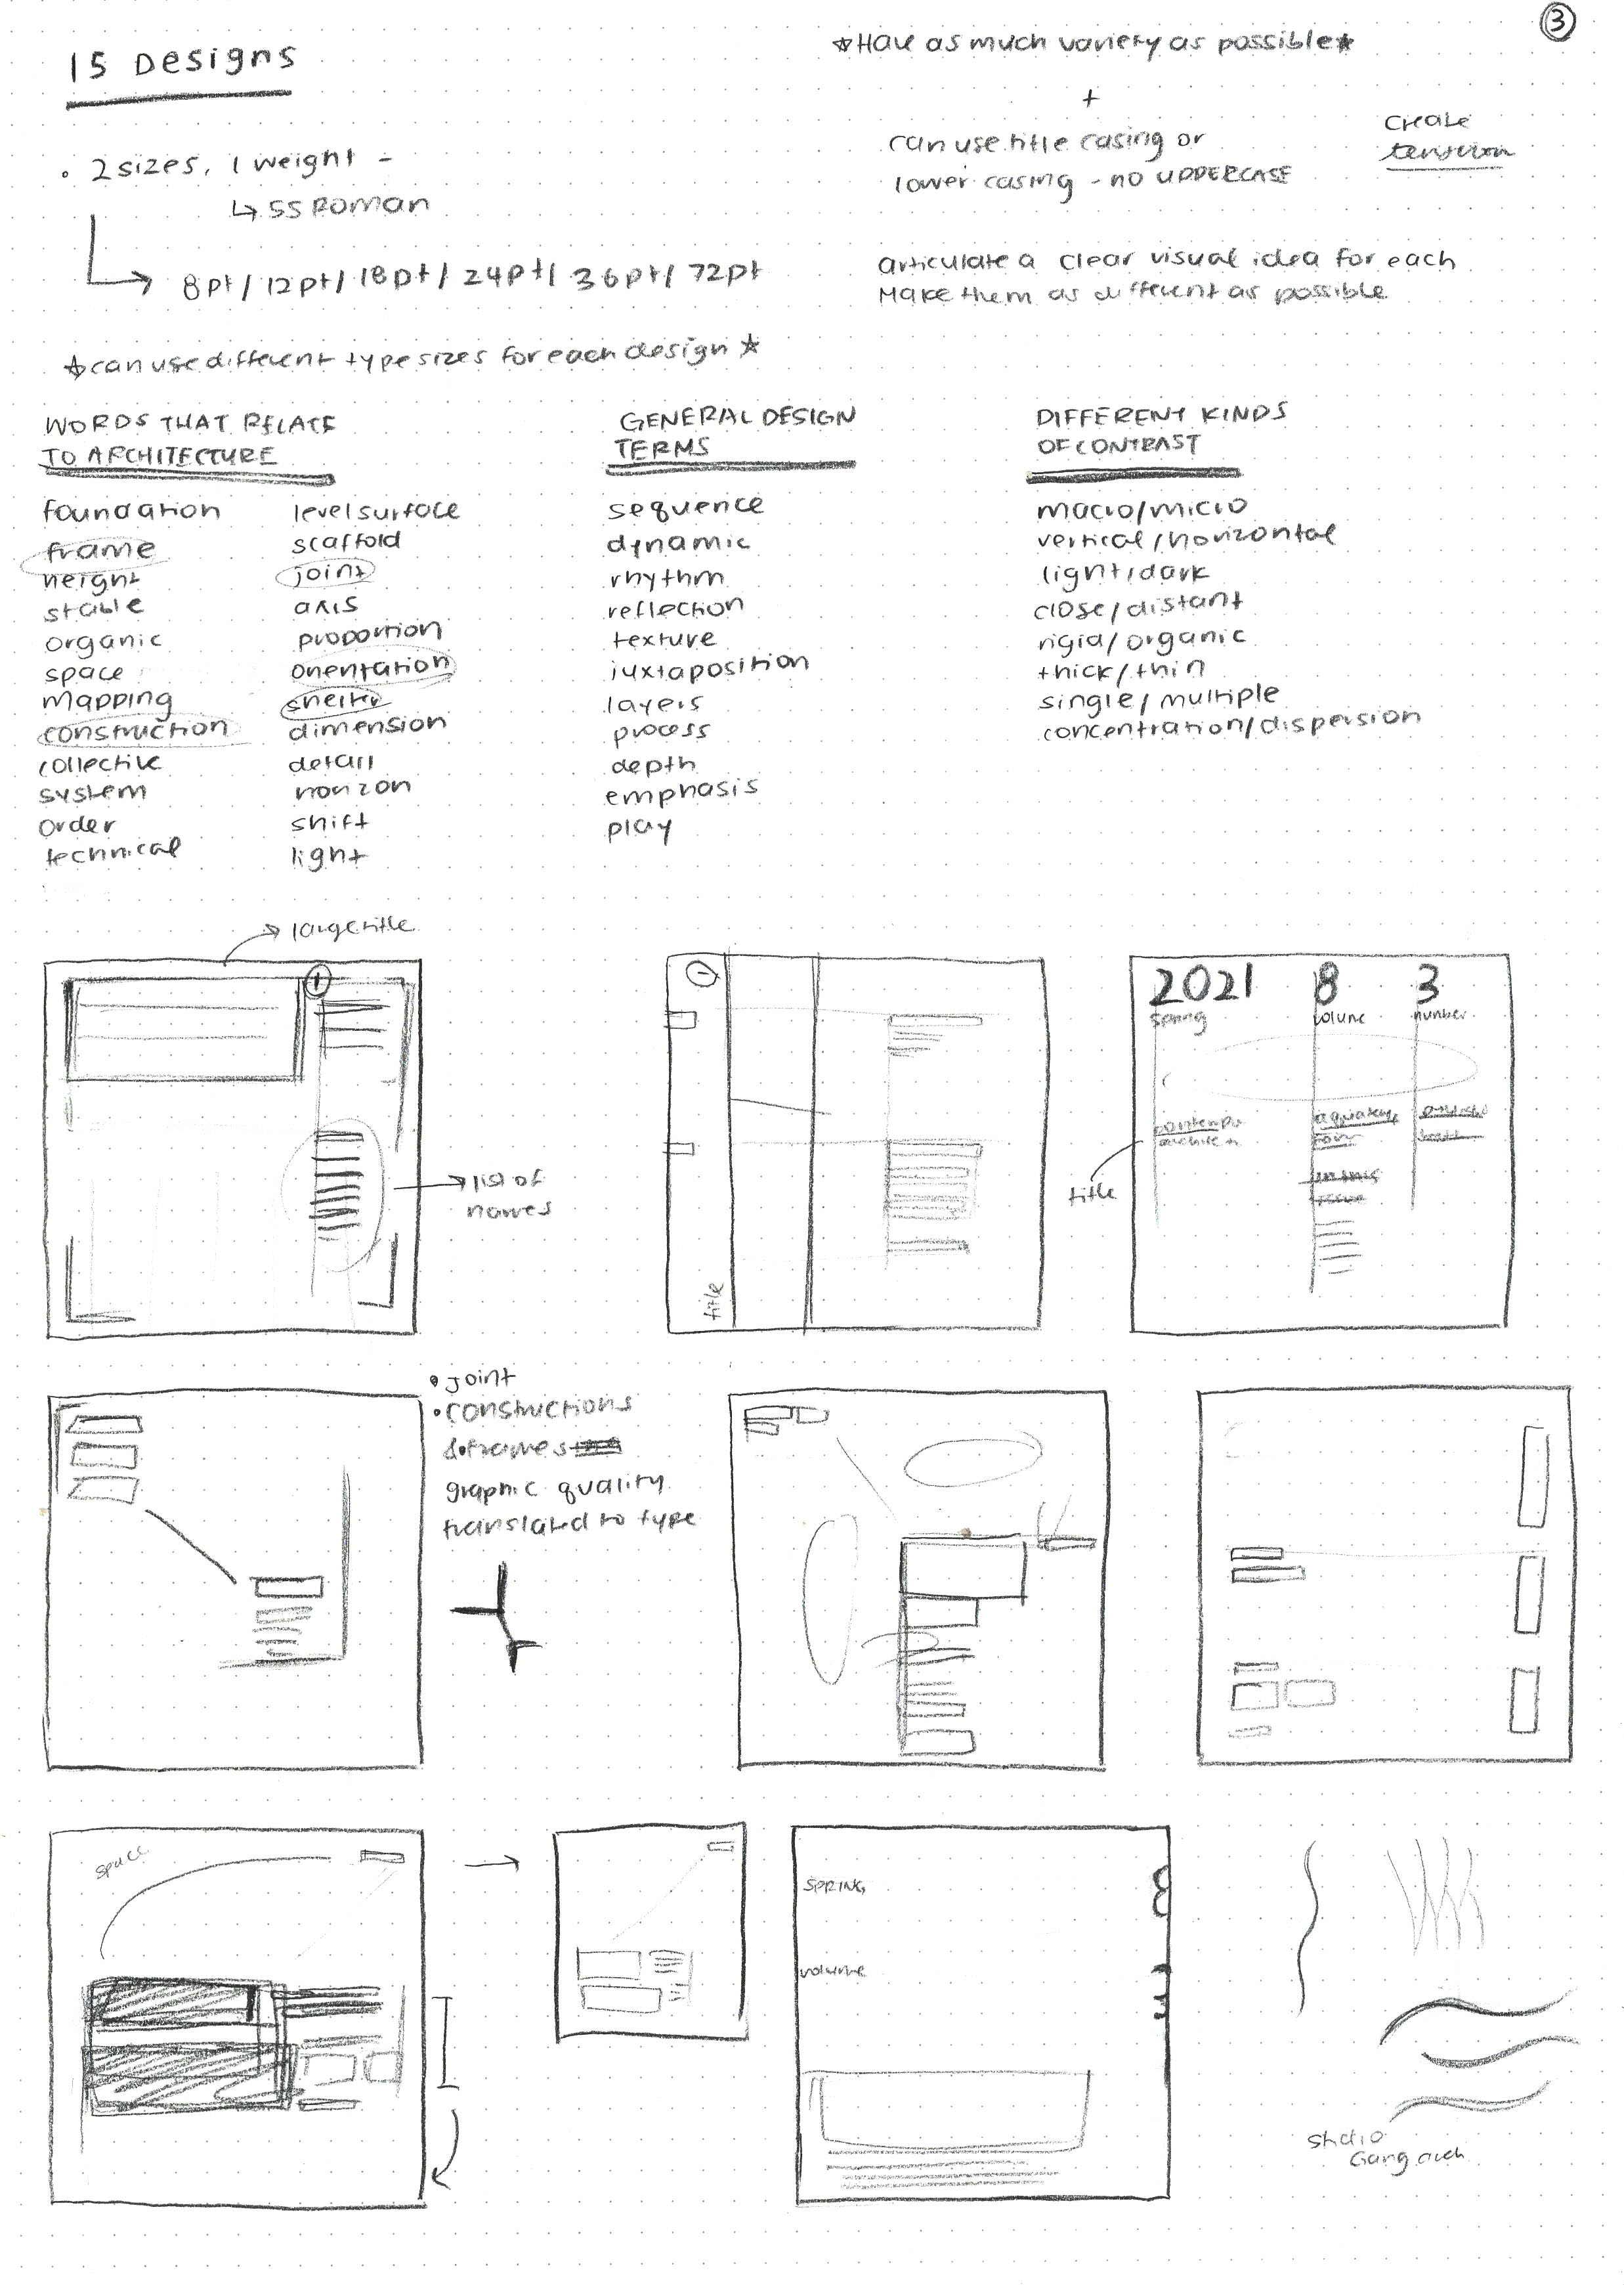 3
15 Designs
☆Have as much variety as possible☆
+
can use title casing or
lower casing - no UPPERCASE
create
tension
• 2 sizes, 1 weight -
↳ 55 Roman
→ 8pt / 12pt / 18pt / 24pt / 36pt / 72pt
articulate a clear visual idea for each
Make them as different as possible
☆can use different type sizes for each design☆
WORDS THAT RELATE
TO ARCHITECTURE
foundation
frame
height
stable
organic
space
mapping
construction
collective
system
order
technical
level surface
scaffold
joint
axis
proportion
orientation
shelter
dimension
detail
horizon
shift
light
GENERAL DESIGN
TERMS
sequence
dynamic
rhythm
reflection
texture
juxtaposition
layers
process
depth
emphasis
play
DIFFERENT KINDS
OF CONTRAST
macro/micro
vertical/horizontal
light/dark
close/distant
rigid/organic
thick/thin
single/multiple
concentration/dispersion
→ large title
→ list of
names
title
2021 8 3
spring volume number
title
• joint
• constructions
& frames
graphic quality
translated to type
space
SPRING
8
volume
3
studio
Gang arch